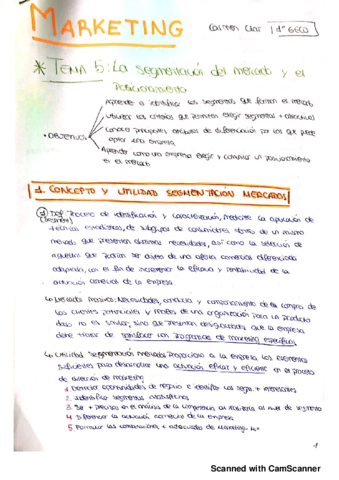 MARKETING
Carmen Clar 1º GECO
* TEMA 5: La segmentación del mercado y el
posicionamiento
Aprende a identificar los segmentos que forman el mercado
Utilizar los criterios que permiten elegir segmentos + atractivos
• OBJETIVOS
Conocer principales de diferenciación por las que puede
optar una empresa
Aprende como una empresa elegir y comunicar un posicionamiento
en el mercado
1. CONCEPTO Y UTILIDAD SEGMENTACIÓN MERCADOS
Def: Proceso de identificación y caracterización, mediante la aplicación de
técnicas estadísticas, de subgrupos de consumidores dentro de un mismo
mercado que presentan distintas necesidades, así como la selección de
aquellos que podrían ser objeto de una oferta comercial diferenciada
adaptada, con el fin de incrementar la eficacia y rentabilidad de la
actuación comercial de la empresa
Mercado masivo: Necesidades, conducta y comportamiento de compra de
los clientes potenciales y reales de una organización para un producto
dado no es similar, sino que presentan desigualdades que la empresa
debe tratar de satisfacer con programas de marketing específicos
Utilidad segmentación mercado: Proporciona a la empresa los elementos
suficientes para desarrollar una actuación eficaz y eficiente en el proceso
de dirección de marketing
1. Detectar oportunidades de negocio e identifica los segm. + interesantes
2. Identifica segmentos
3. Ser + precisa en el análisis de la competencia, al realizarla al nivel de segmento
4. Diferenciar la actuación comercial de la empresa
5. Formular las combinaciones + adecuadas de marketing
1
Scanned with CamScanner